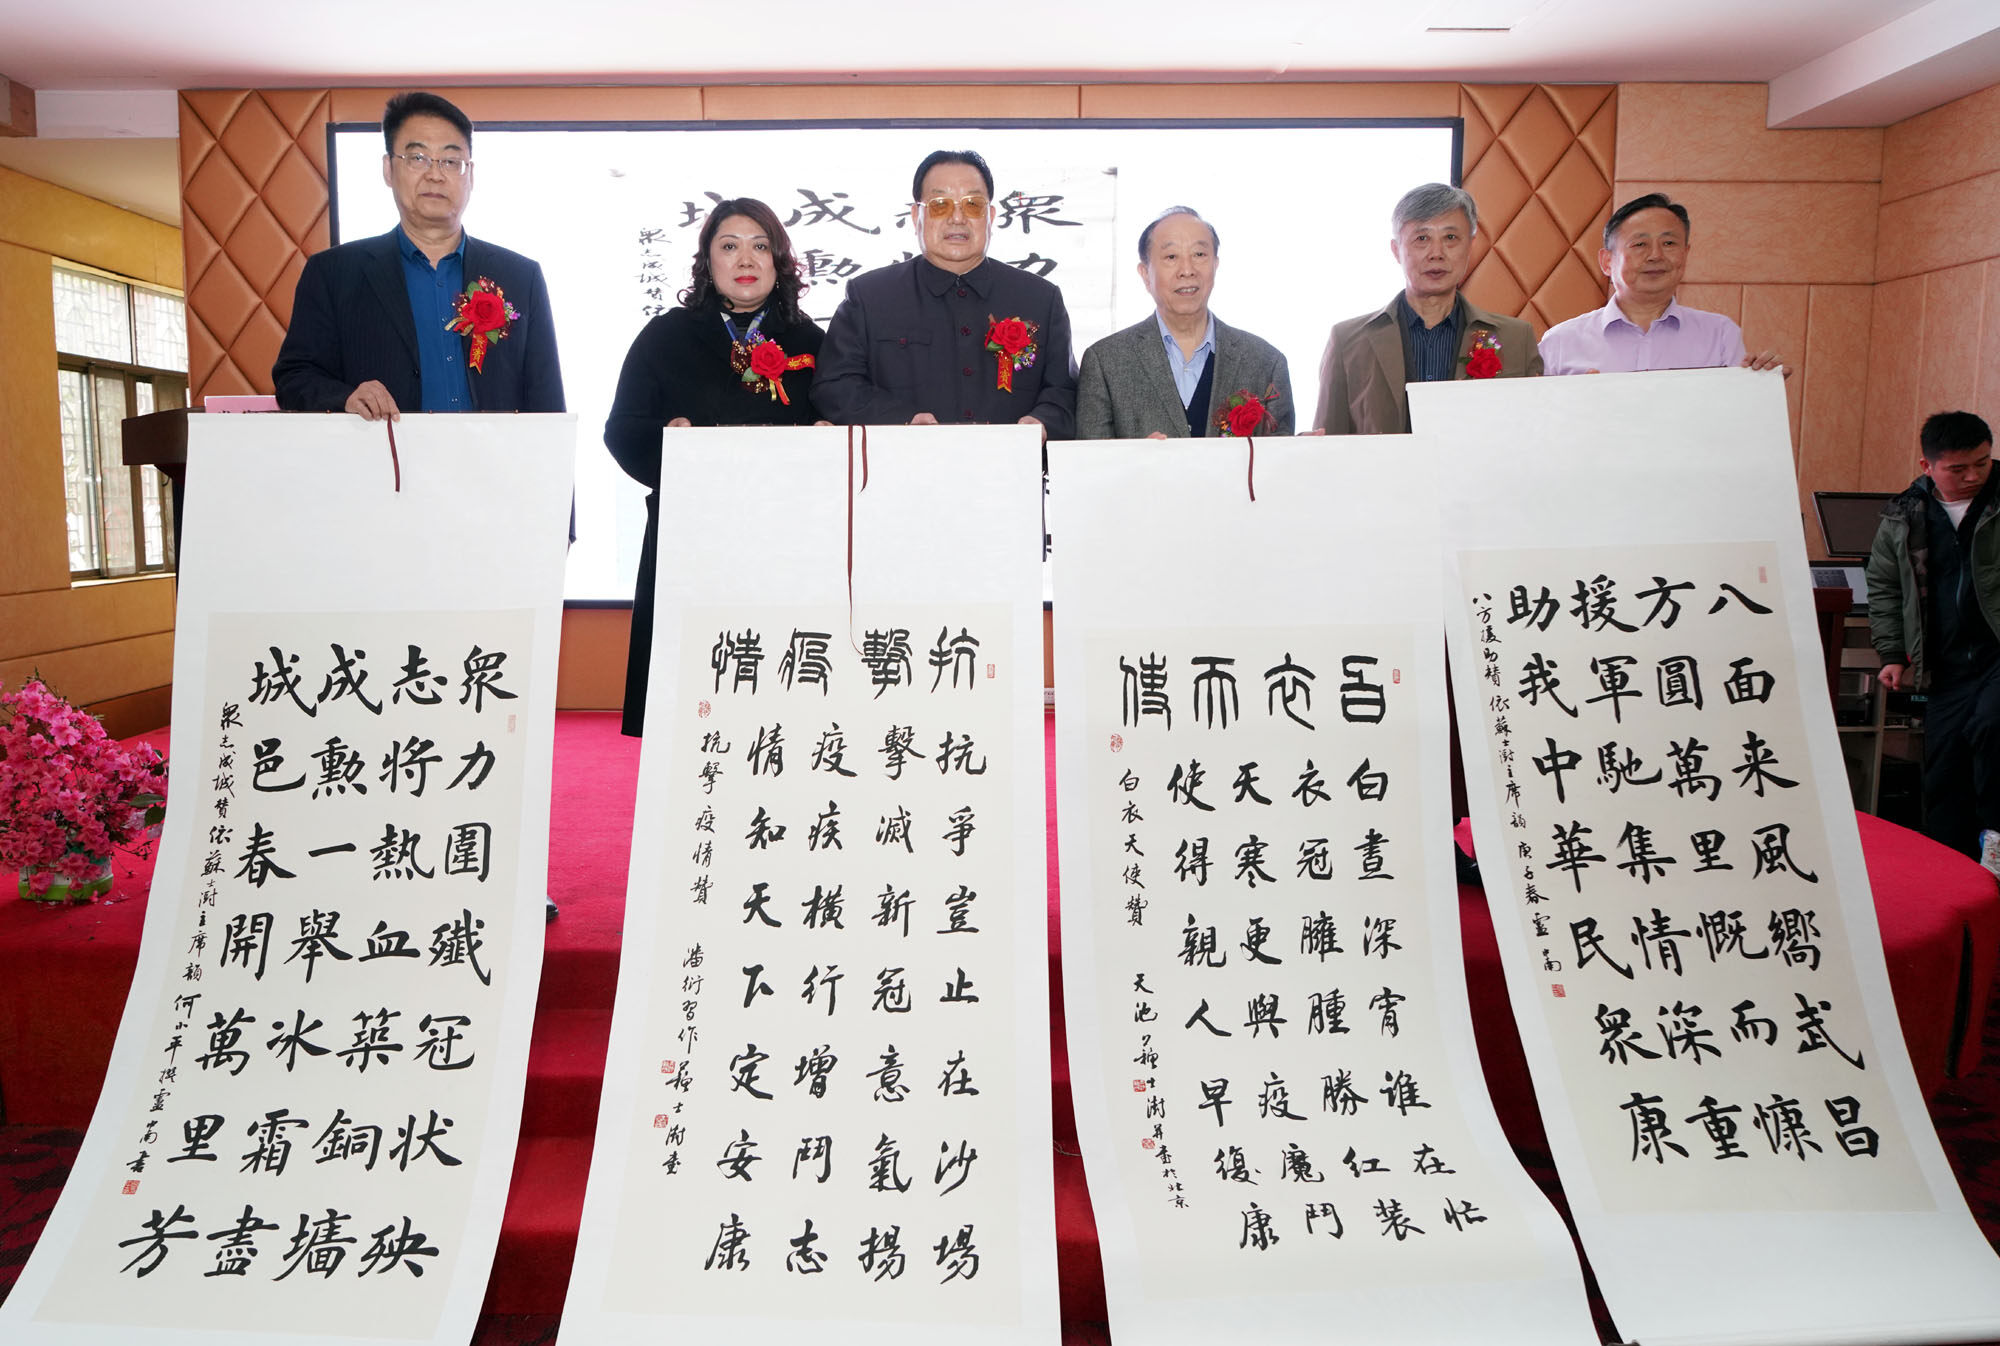 眾力圍殲冠状殃
志將熱血築銅墻
成勳一舉冰霜盡
城邑春開萬里芳
眾志成城贊依蘇士澍主席韻 何小平撰靈南書
抗擊疫情
抗爭豈止在沙場
擊滅新冠意氣揚
疫疾橫行增鬥志
情知天下定安康
抗擊疫情贊 潘衍習作 蘇士澍書
白衣天使
白晝深宵谁在忙
衣冠臃腫勝红装
天寒更與疫魔鬥
使得親人早復康
白衣天使贊 天池 蘇士澍并書於北京
八面来風嚮武昌
方圓萬里慨而慷
援軍馳集情深重
助我中華民眾康
八方援助贊依蘇士澍主席韻 庚子春靈南